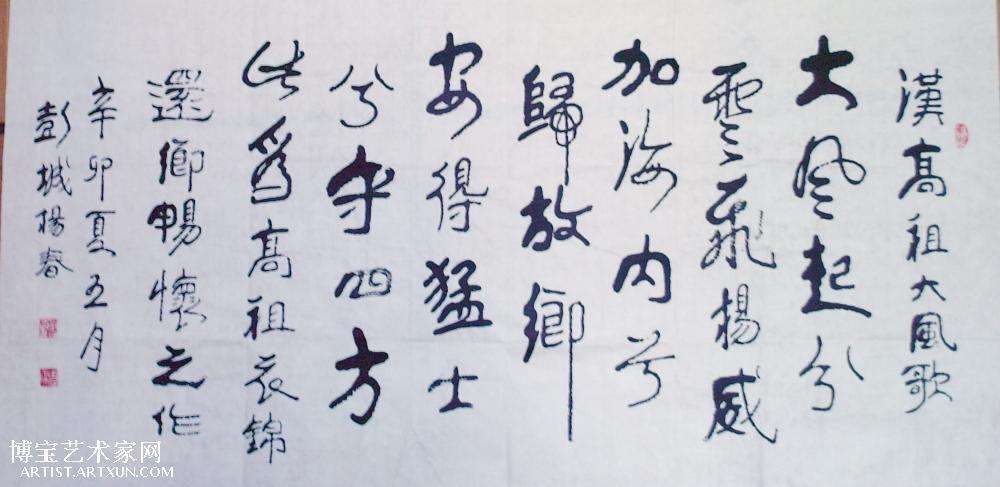 漢高祖大風歌
大風起兮
雲飛揚威
加海内兮
歸故鄉
安得猛士
兮守四方
此爲高祖衣錦
還鄉暢懷之作
辛卯夏五月
彭城楊春
博宝艺术家网
ARTIST.ARTXUN.COM